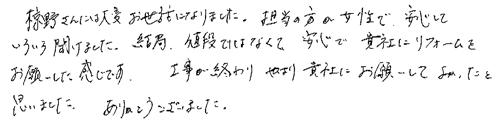 椋野さんには大変お世話になりました。担当の方が女性で、安心して
いろいろ聞けました。結局、値段ではなくて安心で貴社にリフォームを
お願いした感じです。工事が終わりやはり貴社にお願いしてよかったと
思いました。ありがとうございました。